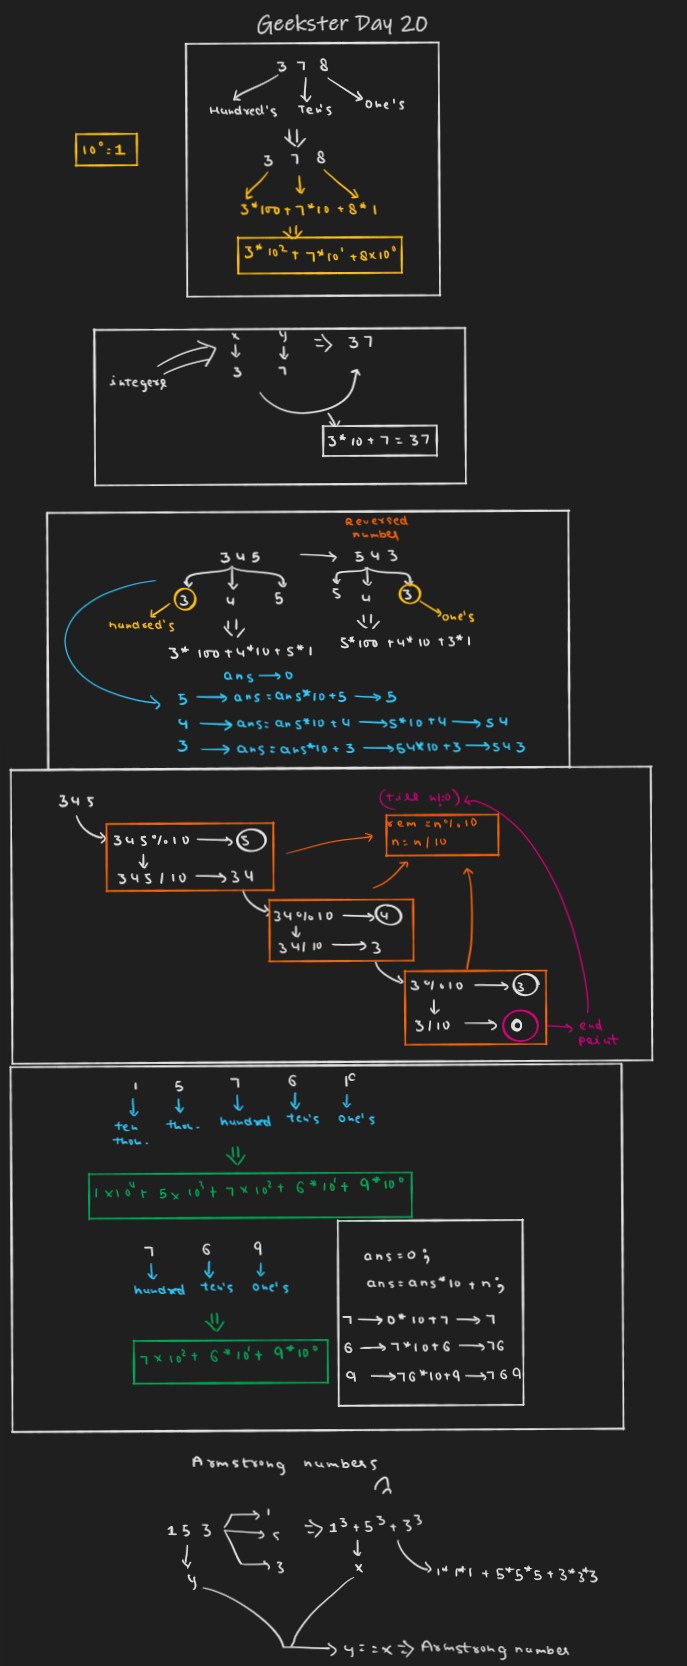 Geekster Day 20
3 7 8
Hundred's Ten's One's
10⁰ = 1
3 7 8
3*100 + 7*10 + 8*1
3*10² + 7*10¹ + 8×10⁰
x y => 37
integers
3 7
3*10 + 7 = 37
Reversed
number
345 543
3 4 5 5 4 3
hundred's one's
3*100 + 4*10 + 5*1 5*100 + 4*10 + 3*1
ans → 0
5 → ans = ans*10+5 → 5
4 → ans = ans*10+4 → 5*10+4 → 54
3 → ans = ans*10+3 → 54*10+3 → 543
345
(till n!=0)
rem = n%10
n = n/10
345%10 → 5
345/10 → 34
34%10 → 4
34/10 → 3
3%10 → 3
3/10 → 0
end
point
1 5 7 6
ten thou. hundred ten's one's
thou.
1×10⁴ + 5×10³ + 7×10² + 6*10¹ + 9*10⁰
7 6 9
hundred ten's one's
7×10² + 6*10¹ + 9*10⁰
ans=0;
ans=ans*10+n;
7 → 0*10+7 → 7
6 → 7*10+6 → 76
9 → 76*10+9 → 769
Armstrong numbers
153 => 1³ + 5³ + 3³
1
5
3
y x
1*1*1 + 5*5*5 + 3*3*3
y==x => Armstrong number